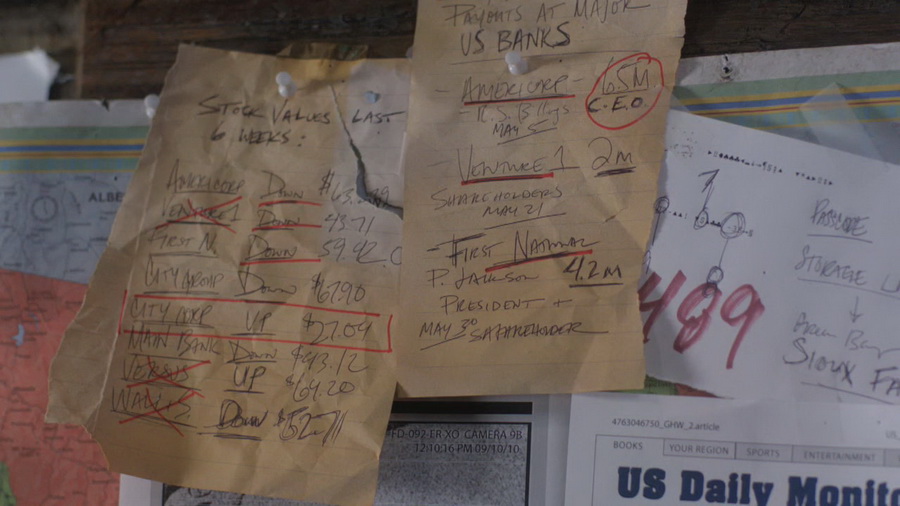 PAYOUTS AT MAJOR
US BANKS
- AMERICORP -
6.5M
C.E.O.
MAY 5
- VENTURE 1
2M
SHAREHOLDERS
MAY 21
FIRST NATIONAL
P. JACKSON
4.2M
PRESIDENT +
MAY 30 SHAREHOLDER
STOCK VALUES LAST
6 WEEKS:
AMERICORP DOWN
VENTURE 1 DOWN 43.71
FIRST N. DOWN 59.92
CITY GROUP DOWN $67.90
CITY CORP UP $27.09
MAIN BANK DOWN $43.12
VERSUS UP $64.20
DOWN $52.71
ALBE
489
PASSCODE
STORAGE
SIOUX FA
FD-092-ER XO CAMERA 9B
12:10:16 PM 09/10/10
4763046750_GHW_2.article
BOOKS
YOUR REGION
SPORTS
ENTERTAINMENT
US Daily Monito